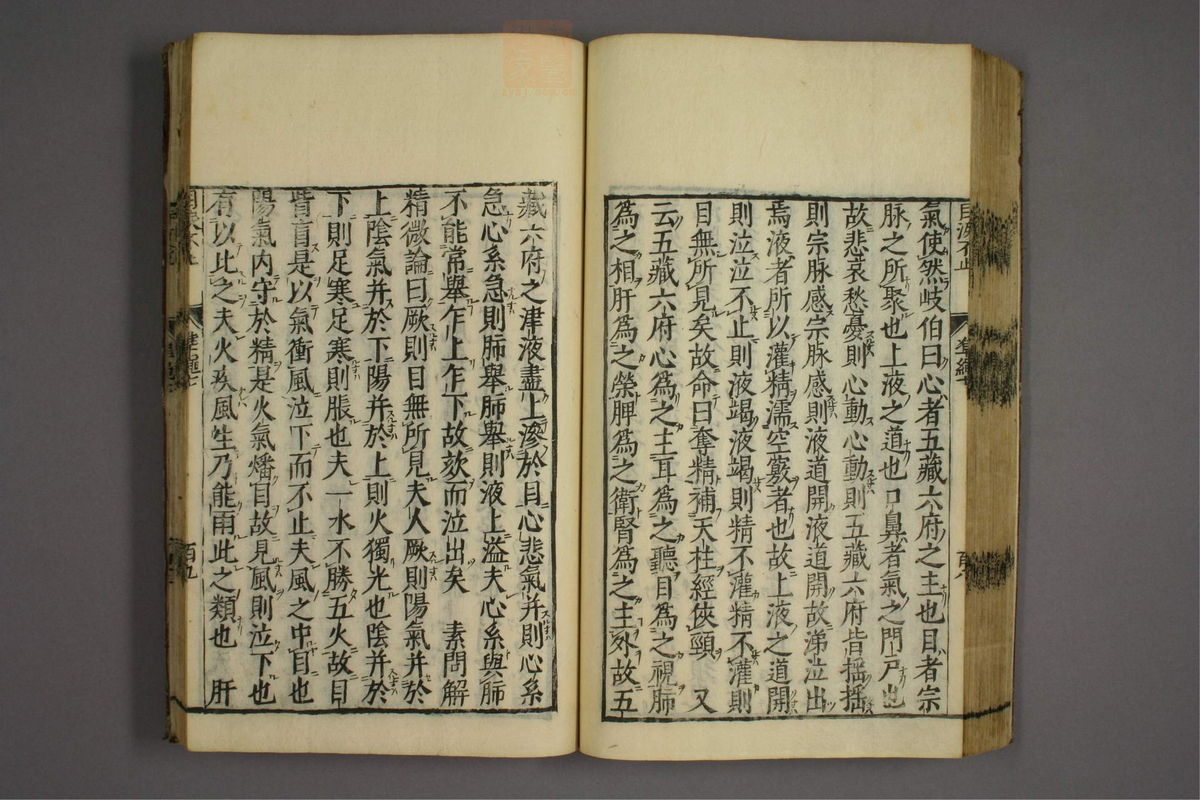 氣使然岐伯曰心者五藏六府之主也目者宗
脉之所聚也上液之道也口鼻者氣之門戸也
故悲哀愁憂則心動心動則五藏六府皆揺揺
則宗脉感宗脉感則液道開液道開故涕泣出
焉液者所以灌精濡空竅者也故上液之道開
則泣泣不止則液竭液竭則精不灌精不灌則
目無所見矣故命曰奪精補天柱經俠頸　又
云五藏六府心爲之主耳爲之聽目爲之視肺
爲之相肝爲之榮脾爲之衛腎爲之主外故五
藏六府之津液盡上滲於目心悲氣并則心系
急心系急則肺舉肺舉則液上溢夫心系與肺
不能常舉乍上乍下故欬而泣出矣　素問解
精微論曰厥則目無所見夫人厥則陽氣并於
上陰氣并於下陽并於上則火獨光也陰并於
下則足寒足寒則脹也夫一水不勝五火故目
眥盲是以氣衝風泣下而不止夫風之中目也
陽氣内守於精是火氣燔目故見風則泣下也
有以比之夫火疾風生乃能雨此之類也　肝